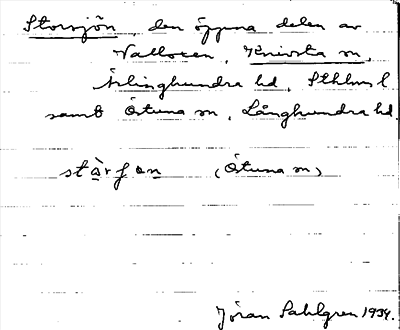 Storsjön, den öppna delen av
Valloxen, Knivsta sn,
Ärlinghundra hd, Sthlms l
samt Östuna sn, Långhundra hd.
(Östuna sn)
Jöran Sahlgren 1934.